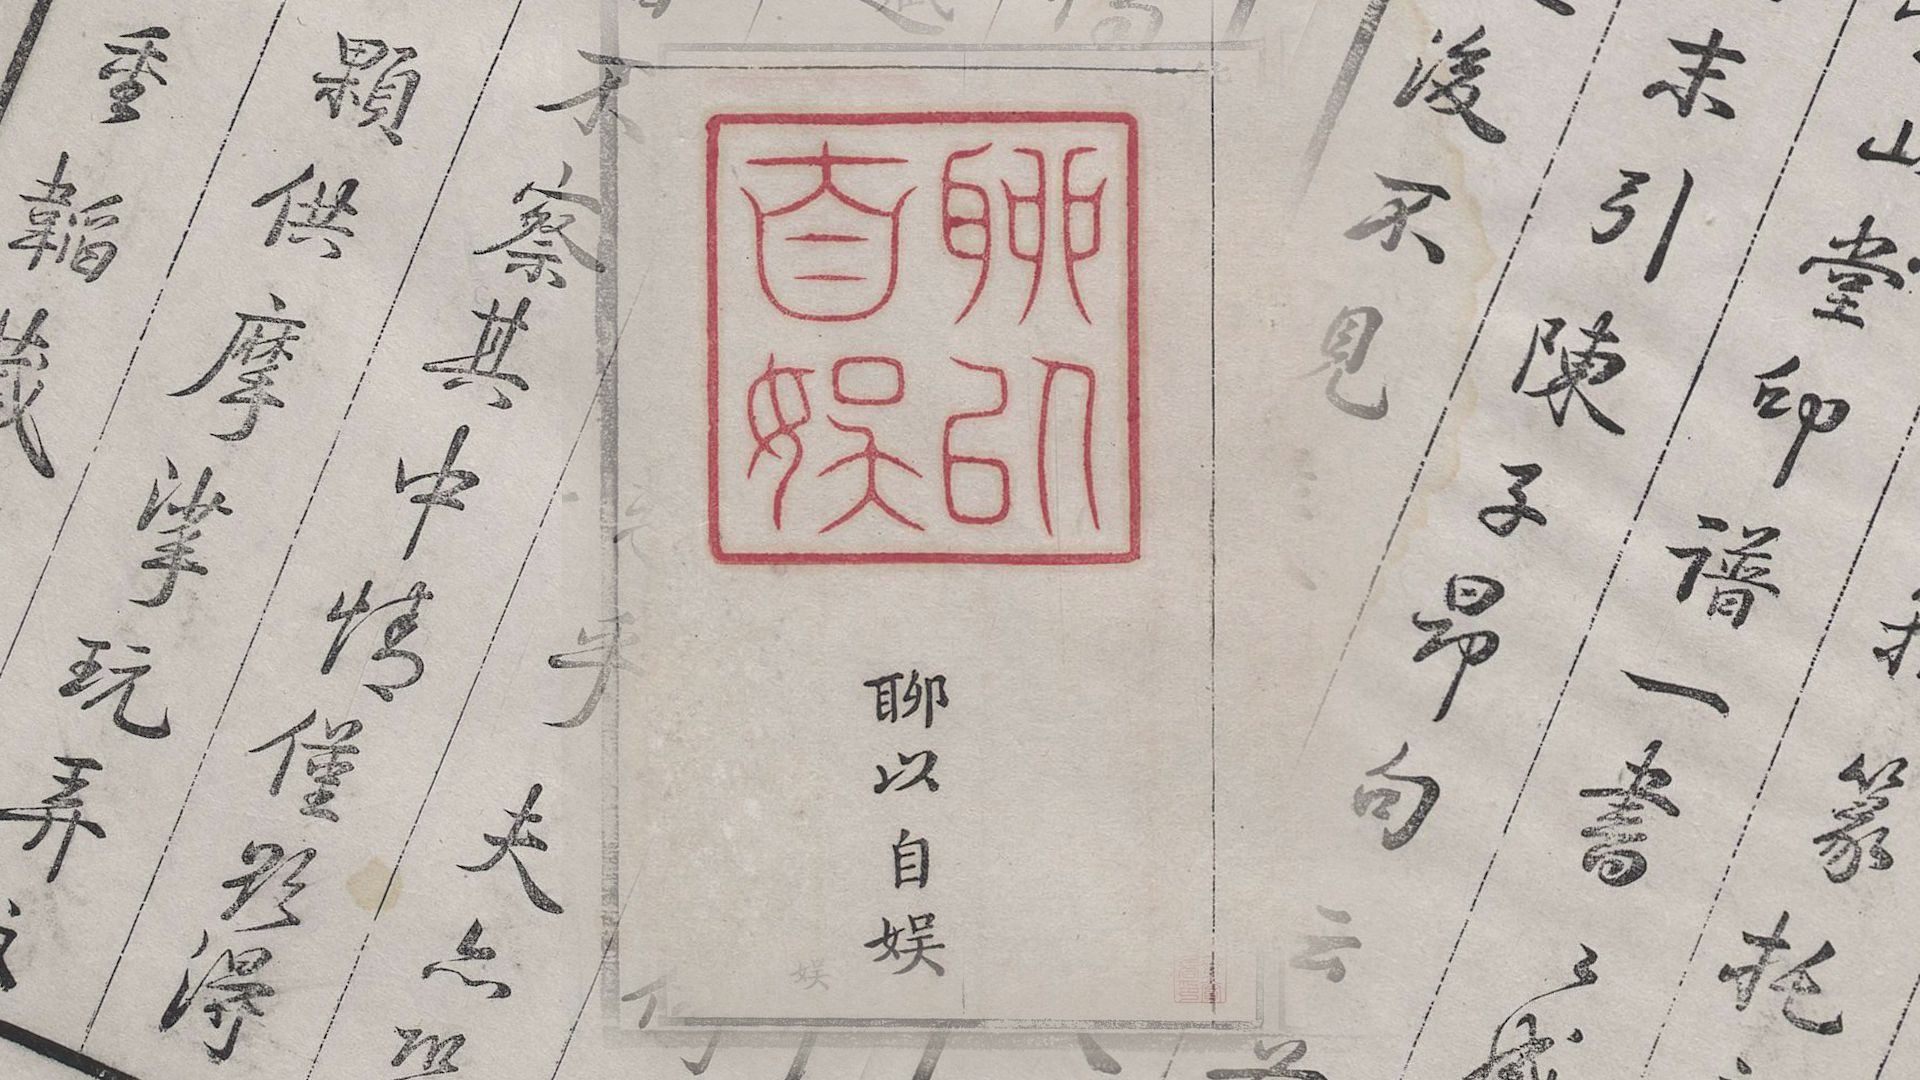 篆
山堂印譜一書
末引陳子昂句云
後不見
聊以自娱
聊以自娱
乎夫亦
不察其中情僅得
顆供摩挲玩弄
韜藏